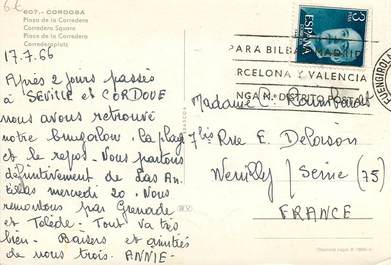 607.- CORDOBA
Plaza de la Corredera
Corredera Square
Place de la Corredera
Correderaplatz
17.7.66
Après 2 jours passés
à SEVILLE et CORDOUE
nous avons retrouvé
notre bungalow, la plage
et le repos. Nous partons
définitivement de Las An-
tillas mercredi 20. Nous
remontons par Grenade
et Tolède. Tout va très
bien. Baisers et amitiés
de nous trois. ANNIE-
3
PTAS
ESPAÑA
PARA BILBAO MADRID
RCELONA Y VALENCIA
NGA N. DE DISTRITO
Madame
7 bis Rue E. Deloison
Neuilly / Seine (75)
FRANCE